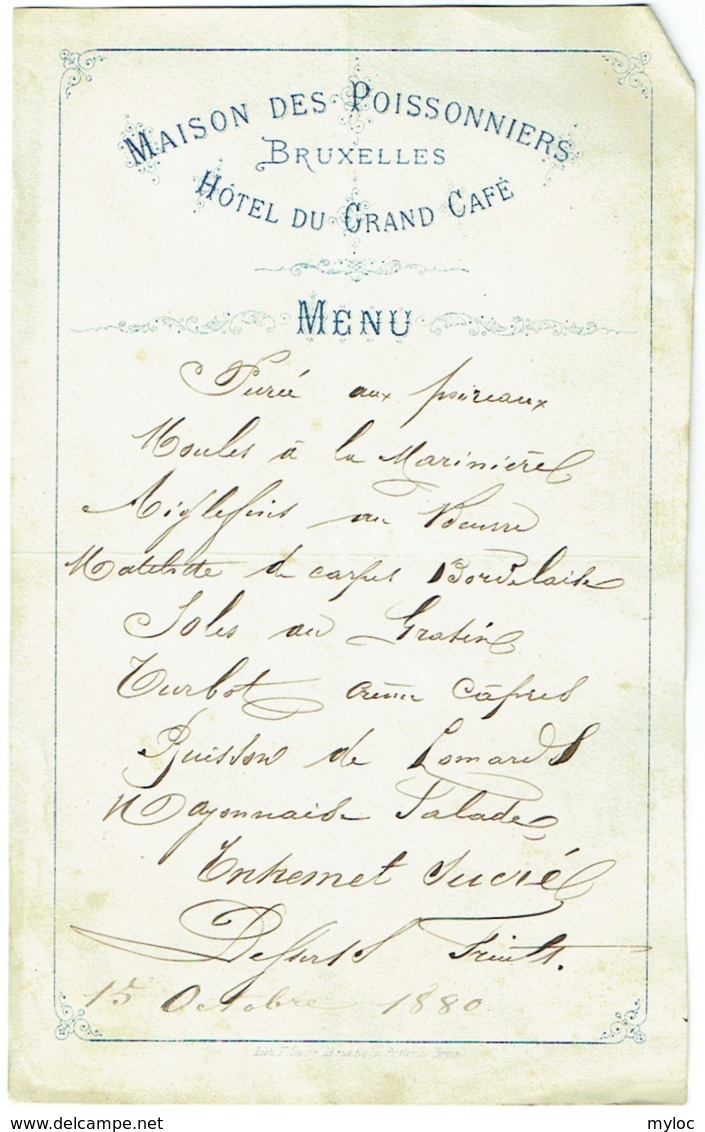 MAISON DES POISSONNIERS
BRUXELLES
HÔTEL DU GRAND CAFÉ
MENU
Purée aux poireaux
Moules à la Marinière
Aiglefins au Beurre
Matelote de carpes Bordelaise
Soles au Gratin
Turbot crême câpres
Buisson de Homards
Mayonnaise Salade
Entremet Sucré
Desserts Fruits.
15 Octobre 1880
myloc